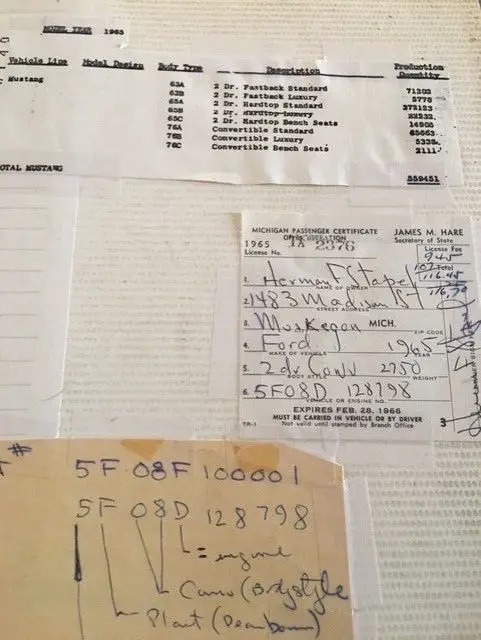 MODEL YEAR 1965
Vehicle Line Model Design Body Type Description Production Quantity
Mustang 63A 2 Dr. Fastback Standard 71303
63B 2 Dr. Fastback Luxury 5776
65A 2 Dr. Hardtop Standard 372123
65B 2 Dr. Hardtop Luxury 22232
65C 2 Dr. Hardtop Bench Seats 14905
76A Convertible Standard 65663
76B Convertible Luxury 5338
76C Convertible Bench Seats 2111
OTAL MUSTANG 559451
MICHIGAN PASSENGER CERTIFICATE JAMES M. HARE
OF REGISTRATION Secretary of State
1965 IA 2376 License Fee
License No. 945
107 Total
116.45
1. Herman F Stapel
NAME OF OWNER
2. 1483 Madison St
STREET ADDRESS
3. Muskegon MICH.
ZIP CODE
4. Ford 1965
MAKE OF VEHICLE YEAR
5. 2 dr Conv 2750
BODY STYLE WEIGHT
6. 5F08D 128798
VEHICLE OR ENGINE NO.
EXPIRES FEB. 28, 1966
MUST BE CARRIED IN VEHICLE OR BY DRIVER
TR-1 Not valid until stamped by Branch Office 3
#
5F 08F 100001
5F 08D 128798
= engine
Conv (Bodystyle
Plant (Dearborn)